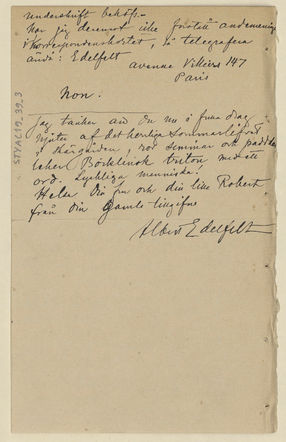 underskrift behöfs. –
Har jag deremot icke förstått andemeningen
i korrespondenskortet, så telegrafera
ändå: Edelfelt
avenue Villiers 147
Paris
Non.
Jag tänker att Du nu i fulla drag
njuter af det herrliga sommarlifvet
i skärgården, ror simmar och
leker Böcklinsk triton med ett
ord. Lyckliga menniska.
Helsa Din fru och din lille Robert
från Din Gamle tillgifne
Albert Edelfelt
STYXC19_39_3